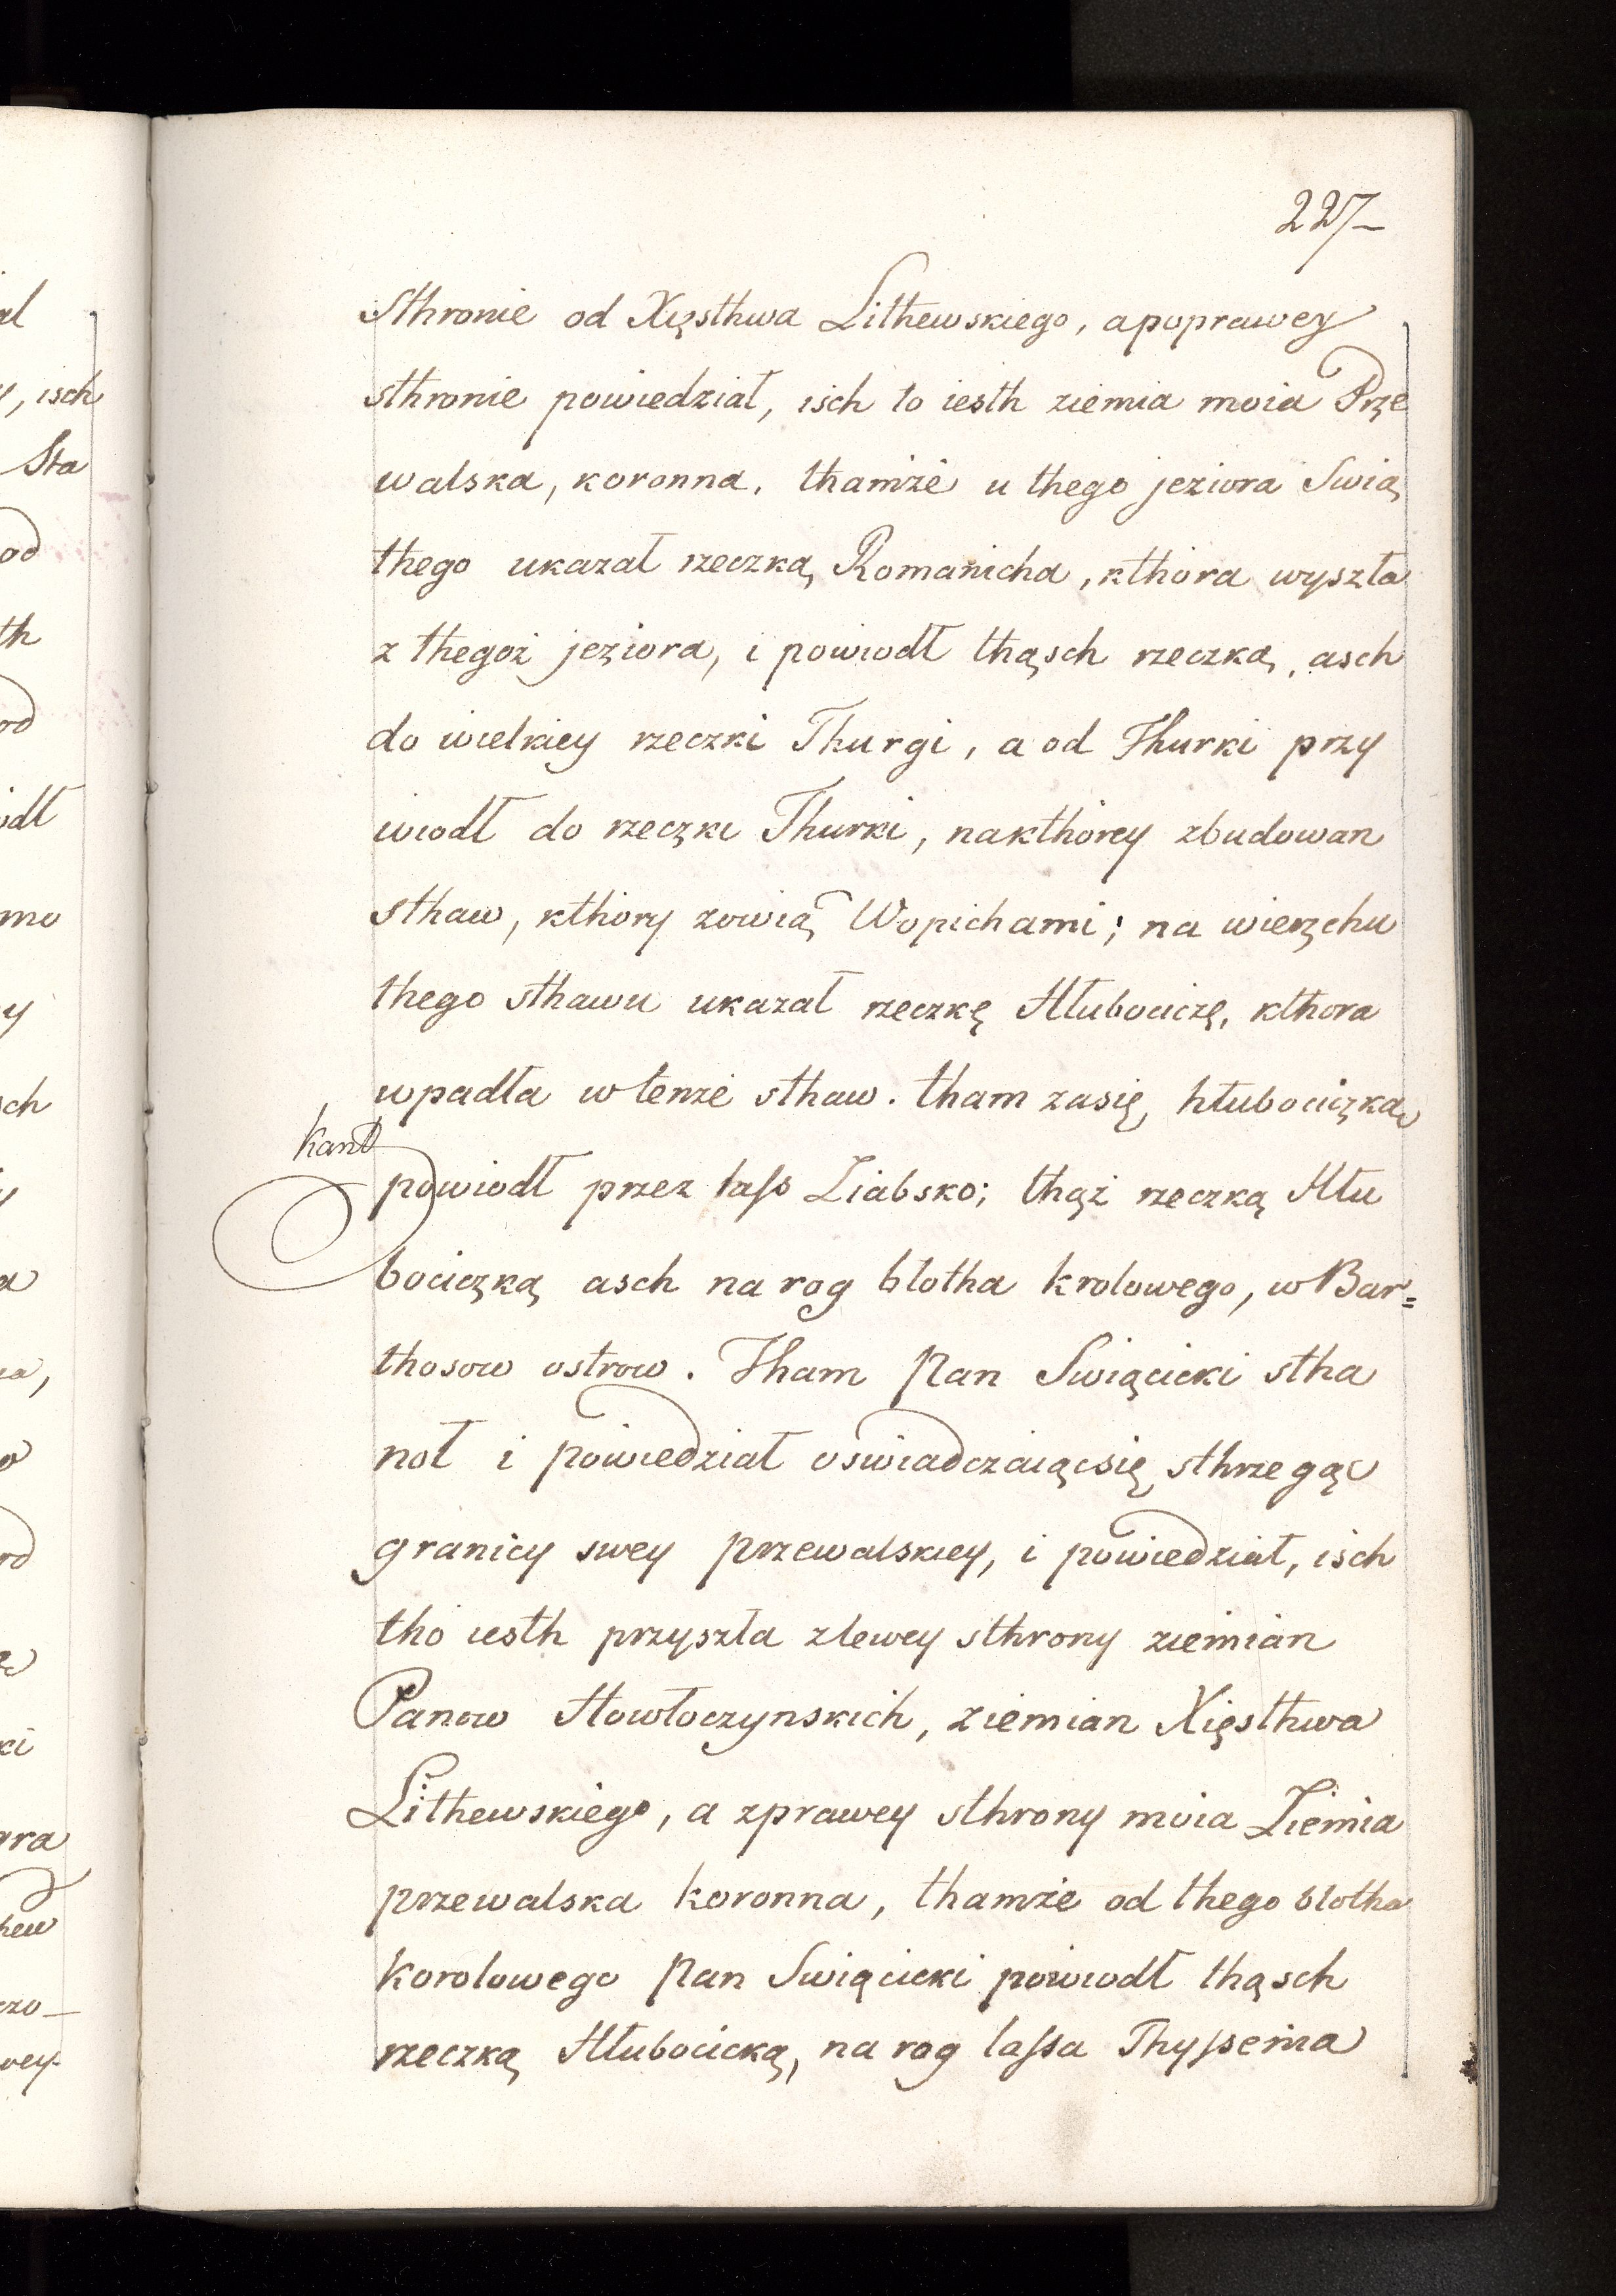 227
Sthronie od Xięsthwa Lithewskiego, apoprawey
sthronie powiedział, isch to iesth ziemia moia Prze
walska, koronna, thamże u thego jeziora Swią
thego ukazał rzeczką Romanicha, kthora wyszła
z thegoż jeziora, i powiodł thąsch rzeczką, asch
do wielkiey rzeczki Thurgi, a od Thurki przy
wiodł do rzeczki Thurki, nakthorey zbudowan
sthaw, kthory zowią Wopichami; na wierzchu
thego sthawu ukazał rzeczkę Hłubociczę, kthora
wpadła wtenże sthaw. tham zasię hłubociczką
kant
powiodł przez lasso Ziabsko; thąż rzeczką Hłu
bociczką asch na rog błotha krolowego, w Bar=
thosow ostrow. Tham Pan Swiącicki stha
noł i powiedział oswiadczaiącsię sthrzegąc
granicy swey przewalskiey, i powiedział, isch
tho iesth przyszła zlewey sthrony ziemian
Panow Howłoczynskich, ziemian Xięsthwa
Lithewskiego, a zprawey sthrony moia Ziemia
przewalska koronna, thamże od thego błotha
korolowego Pan Swiącicki powiodł thąsch
rzeczką Hłubocicką, na rog lassa Thyssenia